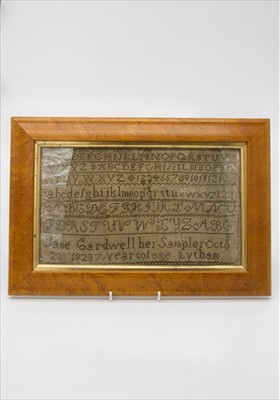 ABCDEFGHIJKLMNOPQRSTUV
ABCDEFGHIJKLMNOPQRS
TUVWXYZ 123456789101112
abcdefghijklmnopqrstuvwxyz12
ABCDEFGHIJKLMNO
PQRSTUVWXYZABC
Jane Cardwell her Sampler Octo
23 1828 7 years of age Lytham